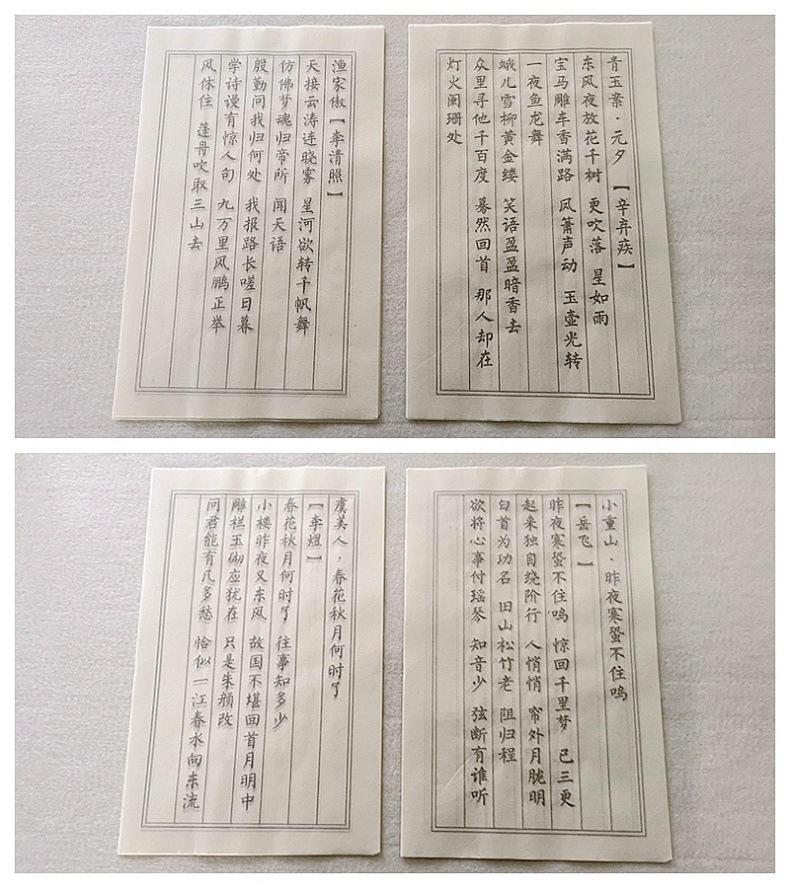 青玉案·元夕 【辛弃疾】
东风夜放花千树 更吹落 星如雨
宝马雕车香满路 风箫声动 玉壶光转
一夜鱼龙舞
蛾儿雪柳黄金缕 笑语盈盈暗香去
众里寻他千百度 蓦然回首 那人却在
灯火阑珊处
渔家傲【李清照】
天接云涛连晓雾 星河欲转千帆舞
仿佛梦魂归帝所 闻天语
殷勤问我归何处 我报路长嗟日暮
学诗谩有惊人句 九万里风鹏正举
风休住 蓬舟吹取三山去
小重山·昨夜寒蛩不住鸣
【岳飞】
昨夜寒蛩不住鸣 惊回千里梦 已三更
起来独自绕阶行 人悄悄 帘外月胧明
白首为功名 旧山松竹老 阻归程
欲将心事付瑶琴 知音少 弦断有谁听
虞美人·春花秋月何时了
【李煜】
春花秋月何时了 往事知多少
小楼昨夜又东风 故国不堪回首月明中
雕栏玉砌应犹在 只是朱颜改
问君能有几多愁 恰似一江春水向东流